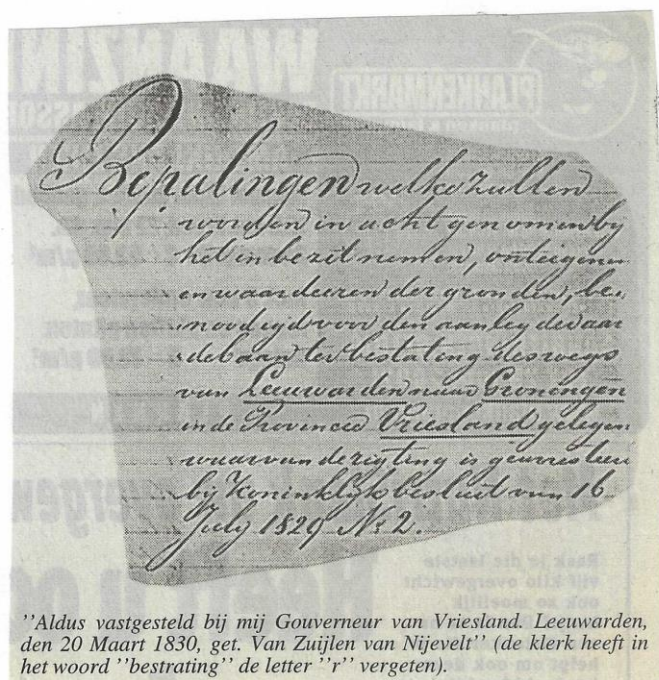 Bepalingen welke zullen
worden in acht genomen by
het in bezit nemen, onteigenen
en waardeeren der gronden, be=
noodigd voor den aanleg der aar
=debaan ter bestating des wegs
van Leeuwarden naar Groningen
in de Provincie Vriesland gelegen
waarvan de rigting is gearresteer
by Koninklyk besluit van 16
July 1829 No 2.
"Aldus vastgesteld bij mij Gouverneur van Vriesland. Leeuwarden,
den 20 Maart 1830, get. Van Zuijlen van Nijevelt" (de klerk heeft in
het woord "bestrating" de letter "r" vergeten).
WAANZIN
PLANKENMARKT
Raak je die laatste
vijf kilo overgewicht
ook zo moeilijk